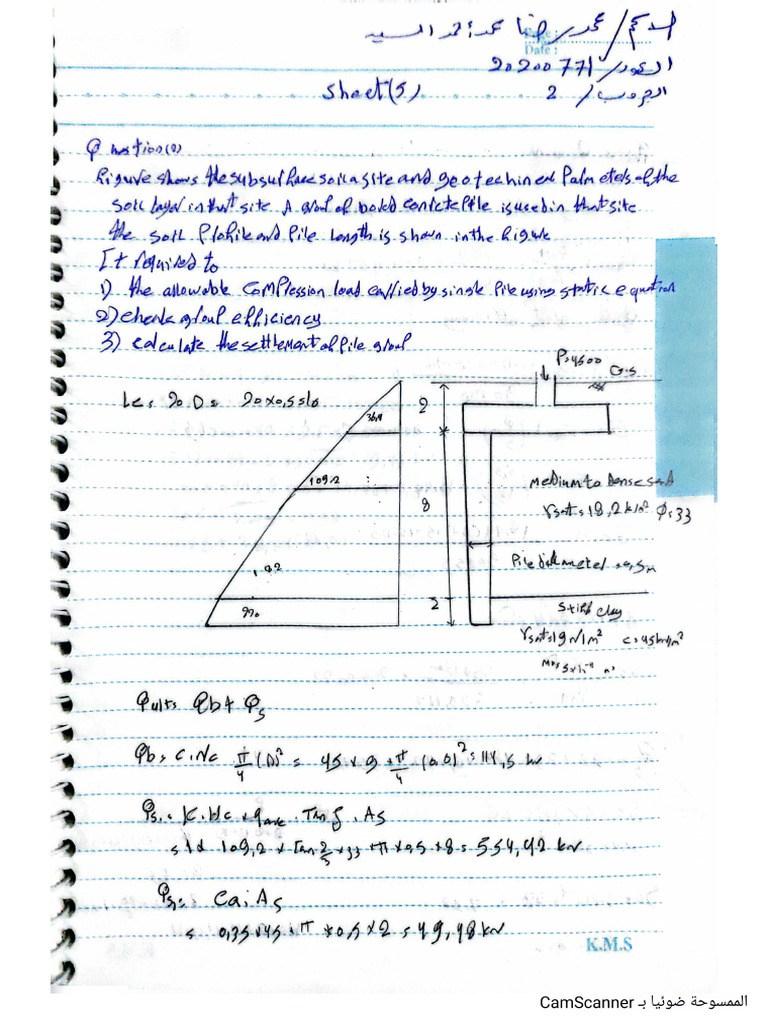 الاسم / محمد رضا محمد أحمد السيد
Date :
الكود / 20200771
الجروب / 2
Sheet (5)
Question (2)
Figure shows the subsurface soil a site and geotechined Parameters of the
soil layer in that site A group of bored concrete Pile is used in that site
the soil Profile and Pile Length is shown in the Figure
It required to
1) the allowable compression load carried by single Pile using static equation
2) check group efficiency
3) calculate the settlement of Pile group
P=4500
G.S
Lc = 20 D = 20 x 0,5 = 10
2
36,4
109.2
medium to Dense sand
γsat = 18,2 k/m² φ = 33
8
Pile diameter = 0,5m
2
stiff clay
γsat = 19 N/m² c = 45 kN/m²
Qult = Qb + Qs
Qb = C . Nc π/4 (D)² = 45 x 9 x π/4 (0,5)²
Qs = K.Hc x qave . Tan δ . As
= 1 x 109,2 x Tan 2/3 x 33 π x 0,5 x 8 = 554,42 kN
Qs = Ca . As
= 0,35 x 45 x π x 0,5 x 2 = 49,48 kN
K.M.S
الممسوحة ضوئيا بـ CamScanner